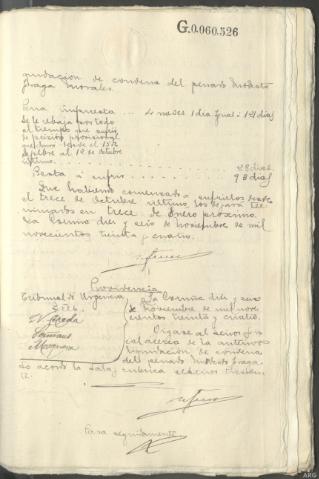 G.0.060.526
quidación de condena del penado Modesto
Fraga Morales.
Pena impuesta ... 4 meses 1 día igual a 121 días
Se le rebaja por todo
el tiempo que sufrió
de prisión provisional
que duró desde el 15 de
Sepbre al 12 de Octubre
último
28 días
Resta a sufrir 93 días
Que habiendo comenzado a sufrirlos desde
el trece de Octubre último, los dejará ter
minados en trece de Enero próximo.
La Coruña diez y seis de Noviembre de mil
novecientos treinta y cuatro.
Providencia
Tribunal de Urgencia
La Coruña diez y seis
de Noviembre de mil nove
cientos treinta y cuatro
Dígase al señor
de la anterior
liquidación de condena
del penado Modesto Fraga
Lo acordó la Sala y rubrica el Señor Presiden
te.
Pasa seguidamente
ARG